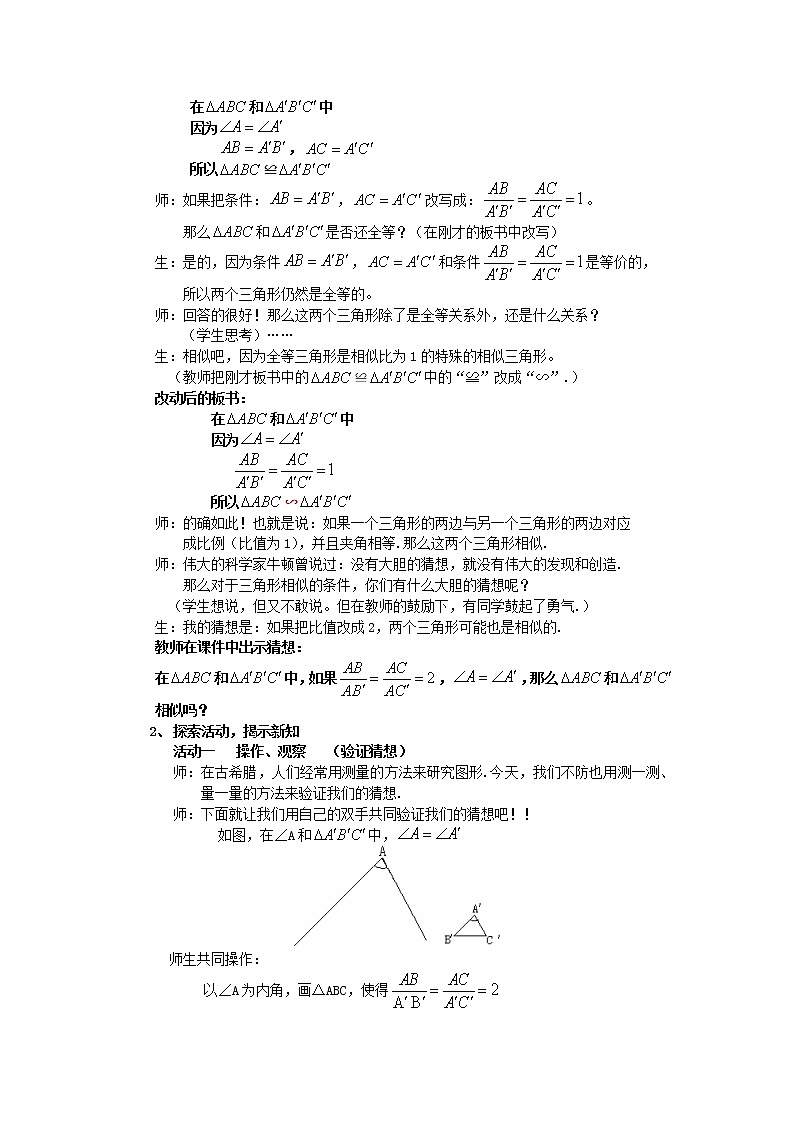 在ΔABC和ΔA′B′C′中
因为∠A=∠A′
AB=A′B′，AC=A′C′
所以ΔABC≌ΔA′B′C′
师：如果把条件：AB=A′B′，AC=A′C′改写成：AB/A′B′=AC/A′C′=1。
那么ΔABC和ΔA′B′C′是否还全等？（在刚才的板书中改写）
生：是的，因为条件AB=A′B′，AC=A′C′和条件AB/A′B′=AC/A′C′=1是等价的，
所以两个三角形仍然是全等的。
师：回答的很好！那么这两个三角形除了是全等关系外，还是什么关系？
（学生思考）……
生：相似吧，因为全等三角形是相似比为1的特殊的相似三角形。
（教师把刚才板书中的ΔABC≌ΔA′B′C′中的“≌”改成“∽”.）
改动后的板书：
在ΔABC和ΔA′B′C′中
因为∠A=∠A′
AB/A′B′=AC/A′C′=1
所以ΔABC∽ΔA′B′C′
师：的确如此！也就是说：如果一个三角形的两边与另一个三角形的两边对应
成比例（比值为1），并且夹角相等.那么这两个三角形相似.
师：伟大的科学家牛顿曾说过：没有大胆的猜想，就没有伟大的发现和创造.
那么对于三角形相似的条件，你们有什么大胆的猜想呢？
（学生想说，但又不敢说。但在教师的鼓励下，有同学鼓起了勇气.）
生：我的猜想是：如果把比值改成2，两个三角形可能也是相似的.
教师在课件中出示猜想：
在ΔABC和ΔA′B′C′中，如果AB/AB′=AC/AC′=2，∠A=∠A′，那么ΔABC和ΔA′B′C′
相似吗？
2、探索活动，揭示新知
活动一 操作、观察 （验证猜想）
师：在古希腊，人们经常用测量的方法来研究图形.今天，我们不防也用测一测、
量一量的方法来验证我们的猜想.
师：下面就让我们用自己的双手共同验证我们的猜想吧！！
如图，在∠A和ΔA′B′C′中，∠A=∠A′
A
A′
B′ C′
师生共同操作：
以∠A为内角，画△ABC，使得AB/A′B′=AC/A′C′=2